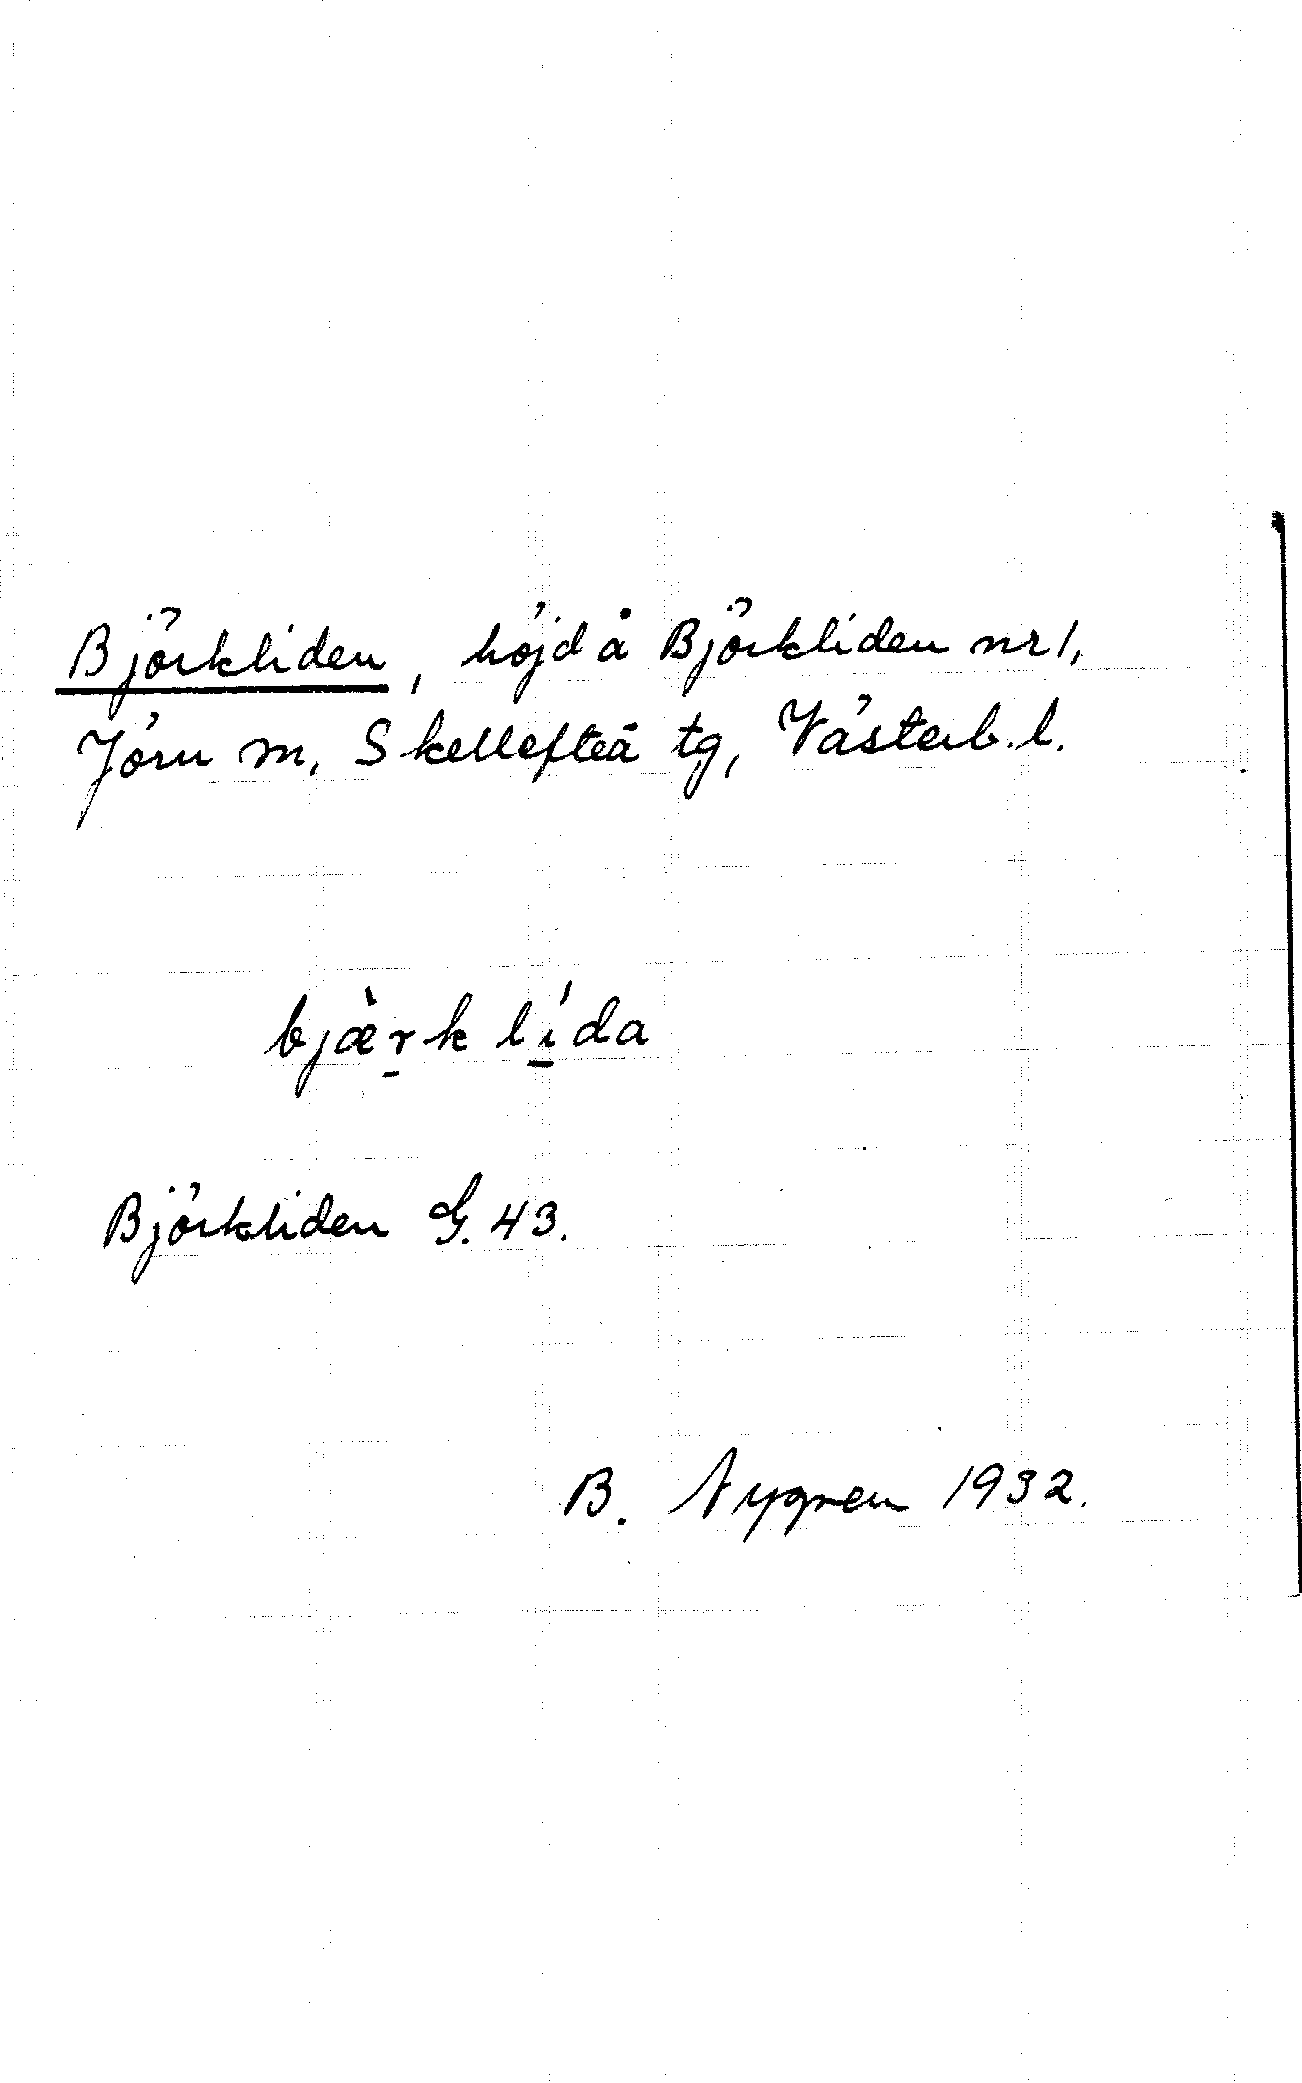 Björkliden, höjd å Björkliden nr 1,
Jörn m, Skellefteå tg, Västerb. l.
bjæ̀r̠k lí̠da
Björkliden G. 43.
B. Nygren 1932.